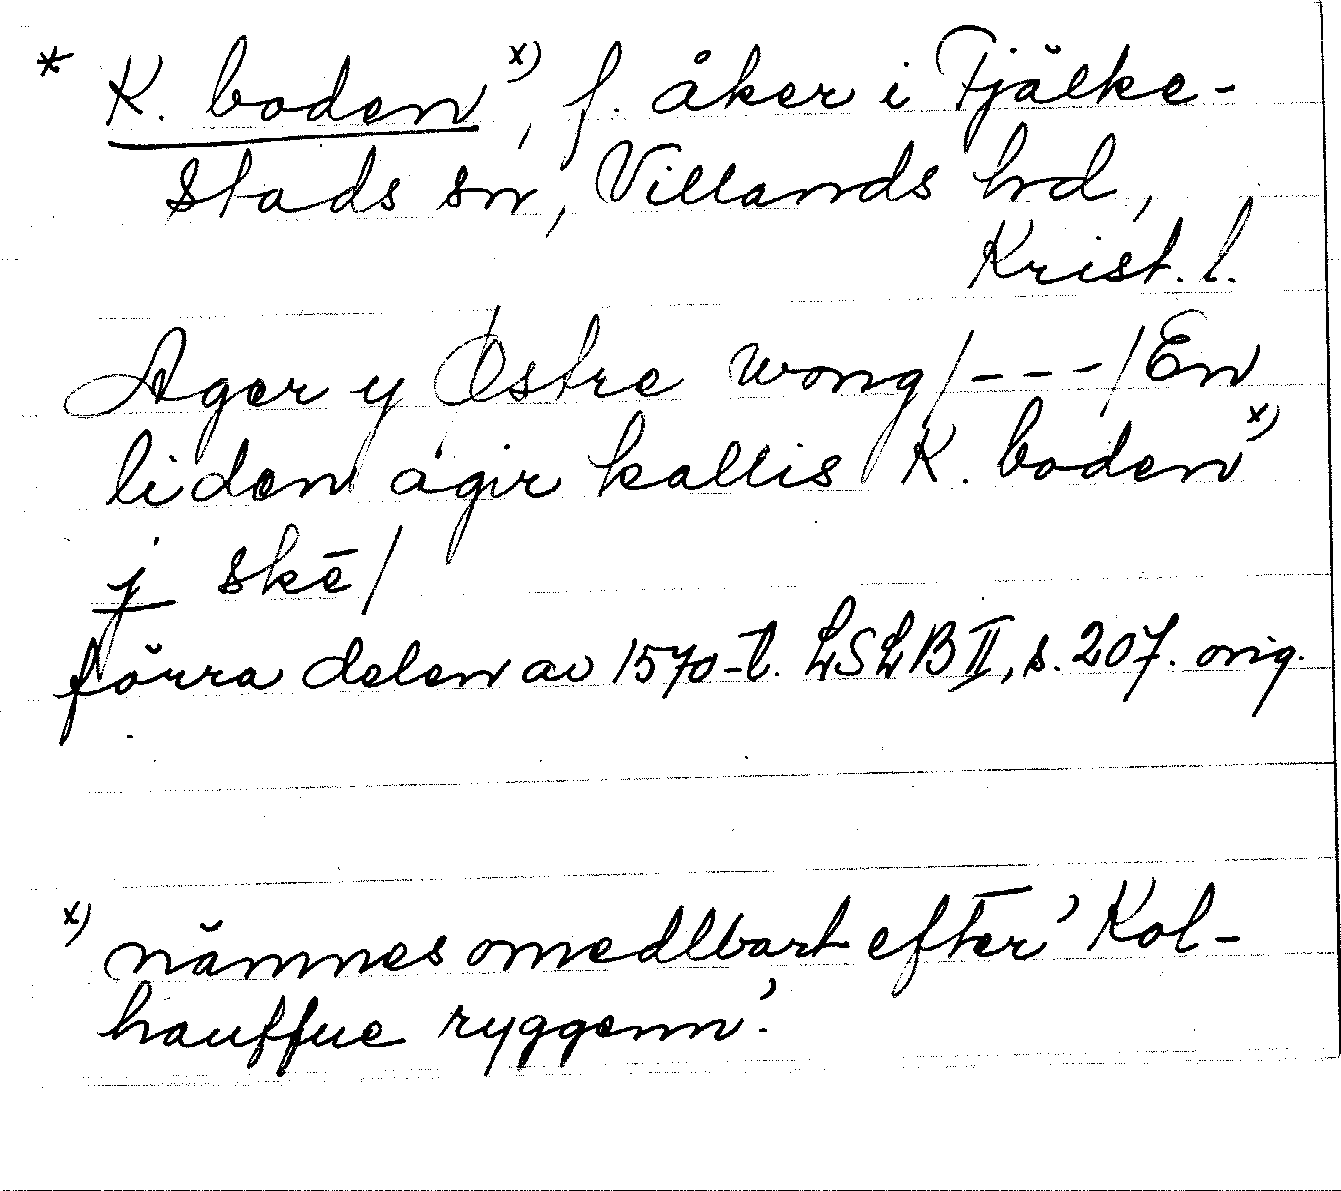 * K. boden x), f. åker i Fjälke-
stads sn, Villands hd,
Krist. l.
Ager y Østre wong /---/ En
liden agir kallis K. boden x)
j skē/
förra delen av 1570-t. LSLB II, s. 207. orig.
x) nämnes omedlbart efter 'Kol-
hauffue ryggenn'.